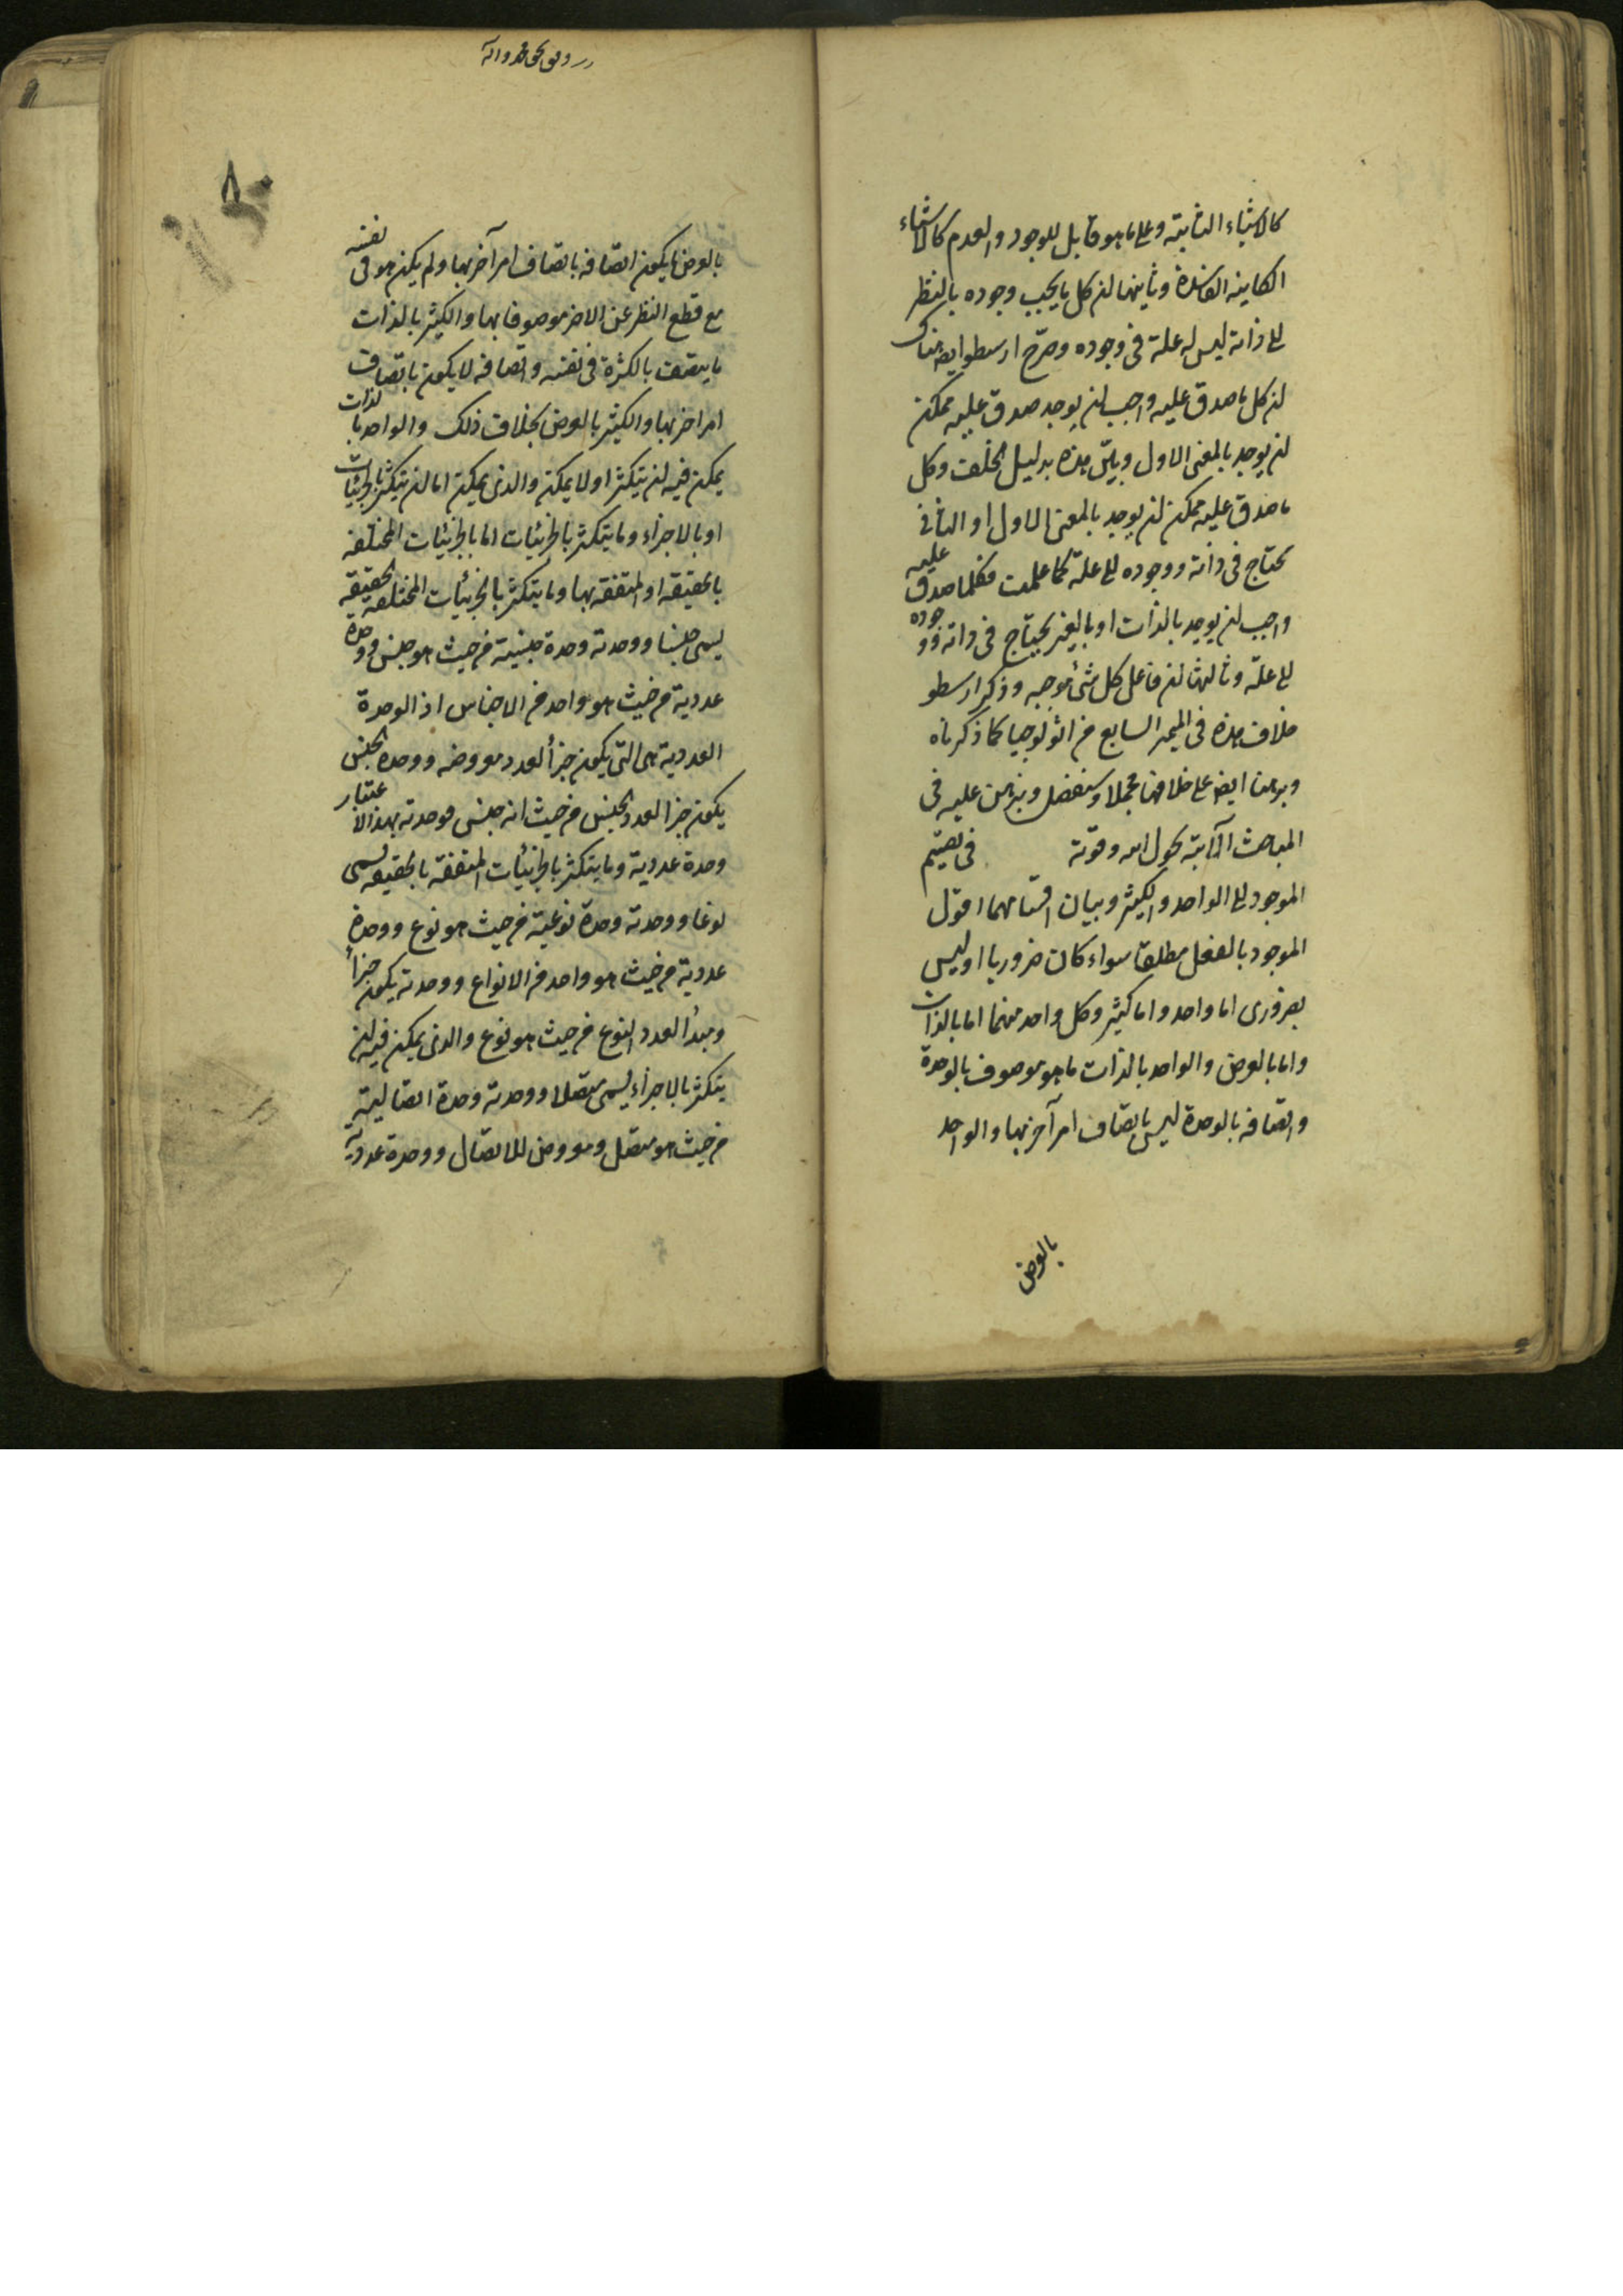 كالاشياء الثابتة وعلى ما هو قابل للوجود والعدم كالاشياء
الكاينه الفاسدة وثانيهما ان كل ما يجب وجوده بالنظر
الى ذاته ليس له علة فى وجوده وصرّح ارسطو ايضا هناك
ان كل ما صدق عليه واجب ان يوجد صدق عليه ممكن
ان يوجد بالمعنى الاول وبيّن هذه بدليل الخلف وكل
ما صدق عليه ممكن ان يوجد بالمعنى الاول او الثانى
يحتاج فى ذاته ووجوده الى علة كما علمت فكلما صدق عليه
واجب ان يوجد بالذات او بالغير يحتاج فى ذاته ووجوده
الى علّة وثالثها ان فاعل كل شئ موجبه وذكر ارسطو
خلاف هذه فى الميمر السابع من اثولوجيا كما ذكرناه
وبرهنا ايضا على خلافها مجملا وسنفصل ونبرهن عليه فى
المباحث الآتية بحول الله وقوته فى تقسيم
الموجود الى الواحد والكثير وبيان اقسامهما اقول
الموجود بالفعل مطلقا سواء كان ضروريا او ليس
بضرورى اما واحد واما كثير وكل واحد منهما اما بالذات
واما بالعرض والواحد بالذات ما هو موصوف بالوحدة
واتصافه بالوحدة ليس باتصاف امر آخر بها والواحد
بالعرض
بالعرض ما يكون اتصافه باتصاف امر آخر بها ولم يكن هو فى نفسه
مع قطع النظر عن الاخر موصوفا بها والكثير بالذات
ما يتصف بالكثرة فى نفسه واتصافه لا يكون باتصاف
امر اخر بها والكثير بالعرض بخلاف ذلك والواحد بالذات
يمكن فيه ان يتكثر او لا يمكن والذى يمكن اما ان يتكثر بالجزئيات
او بالاجزاء وما يتكثر بالجزئيات اما بالجزئيات المختلفه
بالحقيقه او المتفقه بها وما يتكثر بالجزئيات المختلفه الحقيقه
يسمى جنسا ووحدته وحدة جنسية من حيث هو جنس ووحدة
عددية من حيث هو واحد من الاجناس اذ الوحدة
العددية هى التى يكون جزأ لعدد معروضه ووحدة الجنس
يكون جزأ لعدد الجنس من حيث انه جنس فوحدته بهذا الاعتبار
وحدة عددية وما يتكثر بالجزئيات المتفقة بالحقيقه يسمى
نوعا ووحدته وحدة نوعية من حيث هو نوع ووحدة
عددية من حيث هو واحد من الانواع ووحدته يكون جزأ
ومبدأ لعدد النوع من حيث هو نوع والذى يمكن فيه ان
يتكثر بالاجزاء يسمى متصلا ووحدته وحدة اتصالية
من حيث هو متصل ومعروض للاتصال ووحدة عددية